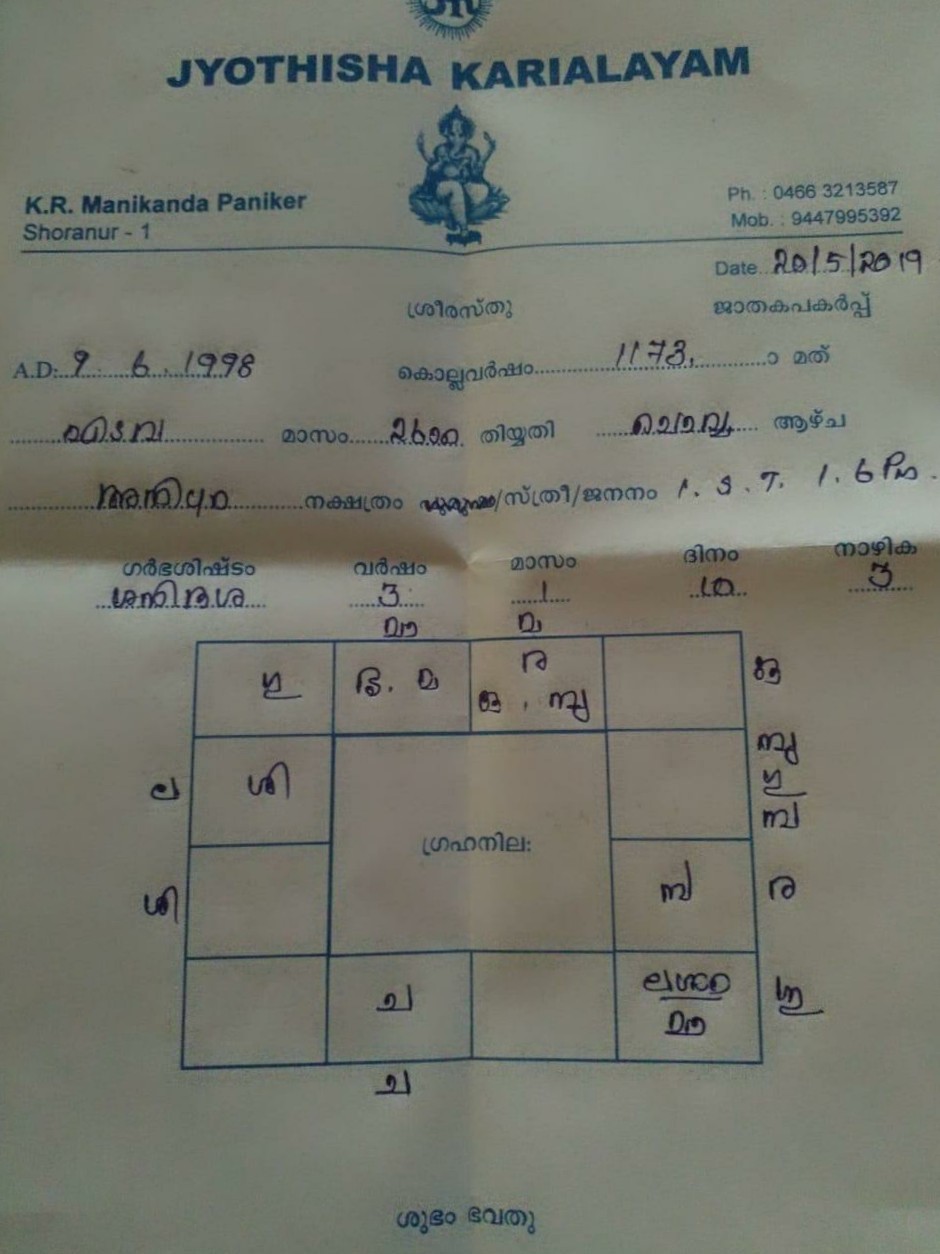 JYOTHISHA KARIALAYAM
K.R. Manikanda Paniker
Shoranur - 1
Ph. : 0466 3213587
Mob. : 9447995392
Date 20/5/2019
ശ്രീരസ്തു ജാതകപകർപ്പ്
A.D: 9 6 .1998 കൊല്ലവർഷം 1173. ാ മത്
എടവ മാസം 26ാം തിയ്യതി ചൊവ്വ ആഴ്ച
അനിഴം നക്ഷത്രം /സ്ത്രീ/ജനനം I. S. T. 1. 6 Pm.
ഗർഭശിഷ്ടം വർഷം മാസം ദിനം നാഴിക
ശനിദശ 3 1 10 3
മ
ഗു മ ര
ല ശി
ഗ്രഹനില:
ശി ര
ച ലഗ്നം
ച
ശുഭം ഭവതു